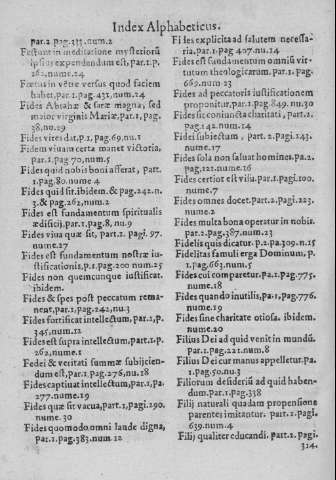 Index Alphabeticus.
par.2.pag.333.num.2
Festum in meditatione mysteriorũ
ipsius expendendum est, par.1.p.
262.nume.24
Fœtus in vêtre versus quod faciem
habet, par.1.pag.431, num.24
Fides Abrahæ & saræ magna, sed
maior virginis Mariæ. par.1, pag.
38, nu.29
Fides vires dat, p.1, pag.69, nu.1
Fidem viuam certa manet victoria,
par.1. pag 70, num.5
Fides quid nobis boni afferat, part.
1, pag.80. nume 4
Fides quid sit. ibidem. & pag.242. n.
3. & pag.262, num.2
Fides est fundamentum spiritualis
ædificij. par.1. pag.8, nu.9
Fides viua quæ sit, part.2. pagi.97.
nume.27
Fides est fundamentum nostræ iu-
stificationis, p.1. pag.200 num 25
Fides non quemcunque iustificat.
ibidem.
Fides & spes post peccatum rema-
nent, par.1, pag.242, nu.3
Fides fortificat intellectum, par.2, p.
345, num.12
Fides est supra intellectum, part.1. p.
262, nume.1
Fedei & veritati summæ subijcien-
dum est, par.1. pag.276, nu.18
Fides captiuat intellectum, par.1, pa.
277. nume.19
Fides quæ sit vacua, part.1, pagi.290.
nume. 30
Fides quomodo omni laude digna,
par.1. pag.383. num.12
Fi les explicita ad salutem necessa-
ria. par.1. pag 407. nu.14
Fides est fundamentum omniũ vir-
tutum theologicarum. par.1. pag.
669. num 23
Fides ad peccatoris iustificationem
proponitur, par.1. pag.849. nu.30
Fides sit coniuncta charitati, part.2.
pag.142. num.14
Fides subiectum, part. 2. pagi.143.
nume.17
Fides sola non saluat homines. pa.2.
pag.122. nume.16
Fides certior est visu. par.1. pagi.100.
nume.7
Fides omnes docet. part.2. pagi.223.
nume.2
Fides multa bona operatur in nobis.
par.2. pag.387. num.23
Fidelis quis dicatur. p.2. pa.309. n.15
Fidelitas famuli erga Dominum, p.
1. pag.663. num.5
Fides cui comparetur. pa.1. pag.775.
nume.18
Fides quando inutilis, pa.1, pag.776.
nume.19
Fides sine charitate otiosa. ibidem.
nume.20
Filius Dei ad quid venit in mundũ.
par.1. pag.221. num.8
Filius Dei cur manus appelletur. pa.
1. pag.50. nu.3
Filiorum desideriũ ad quid haben-
dum. par.1. pag.338
Filij naturali quadam propensione
parentes imitantur. part.2. pagi.
639. num.4
Filij qualiter educandi. part.2. pagi.
324.